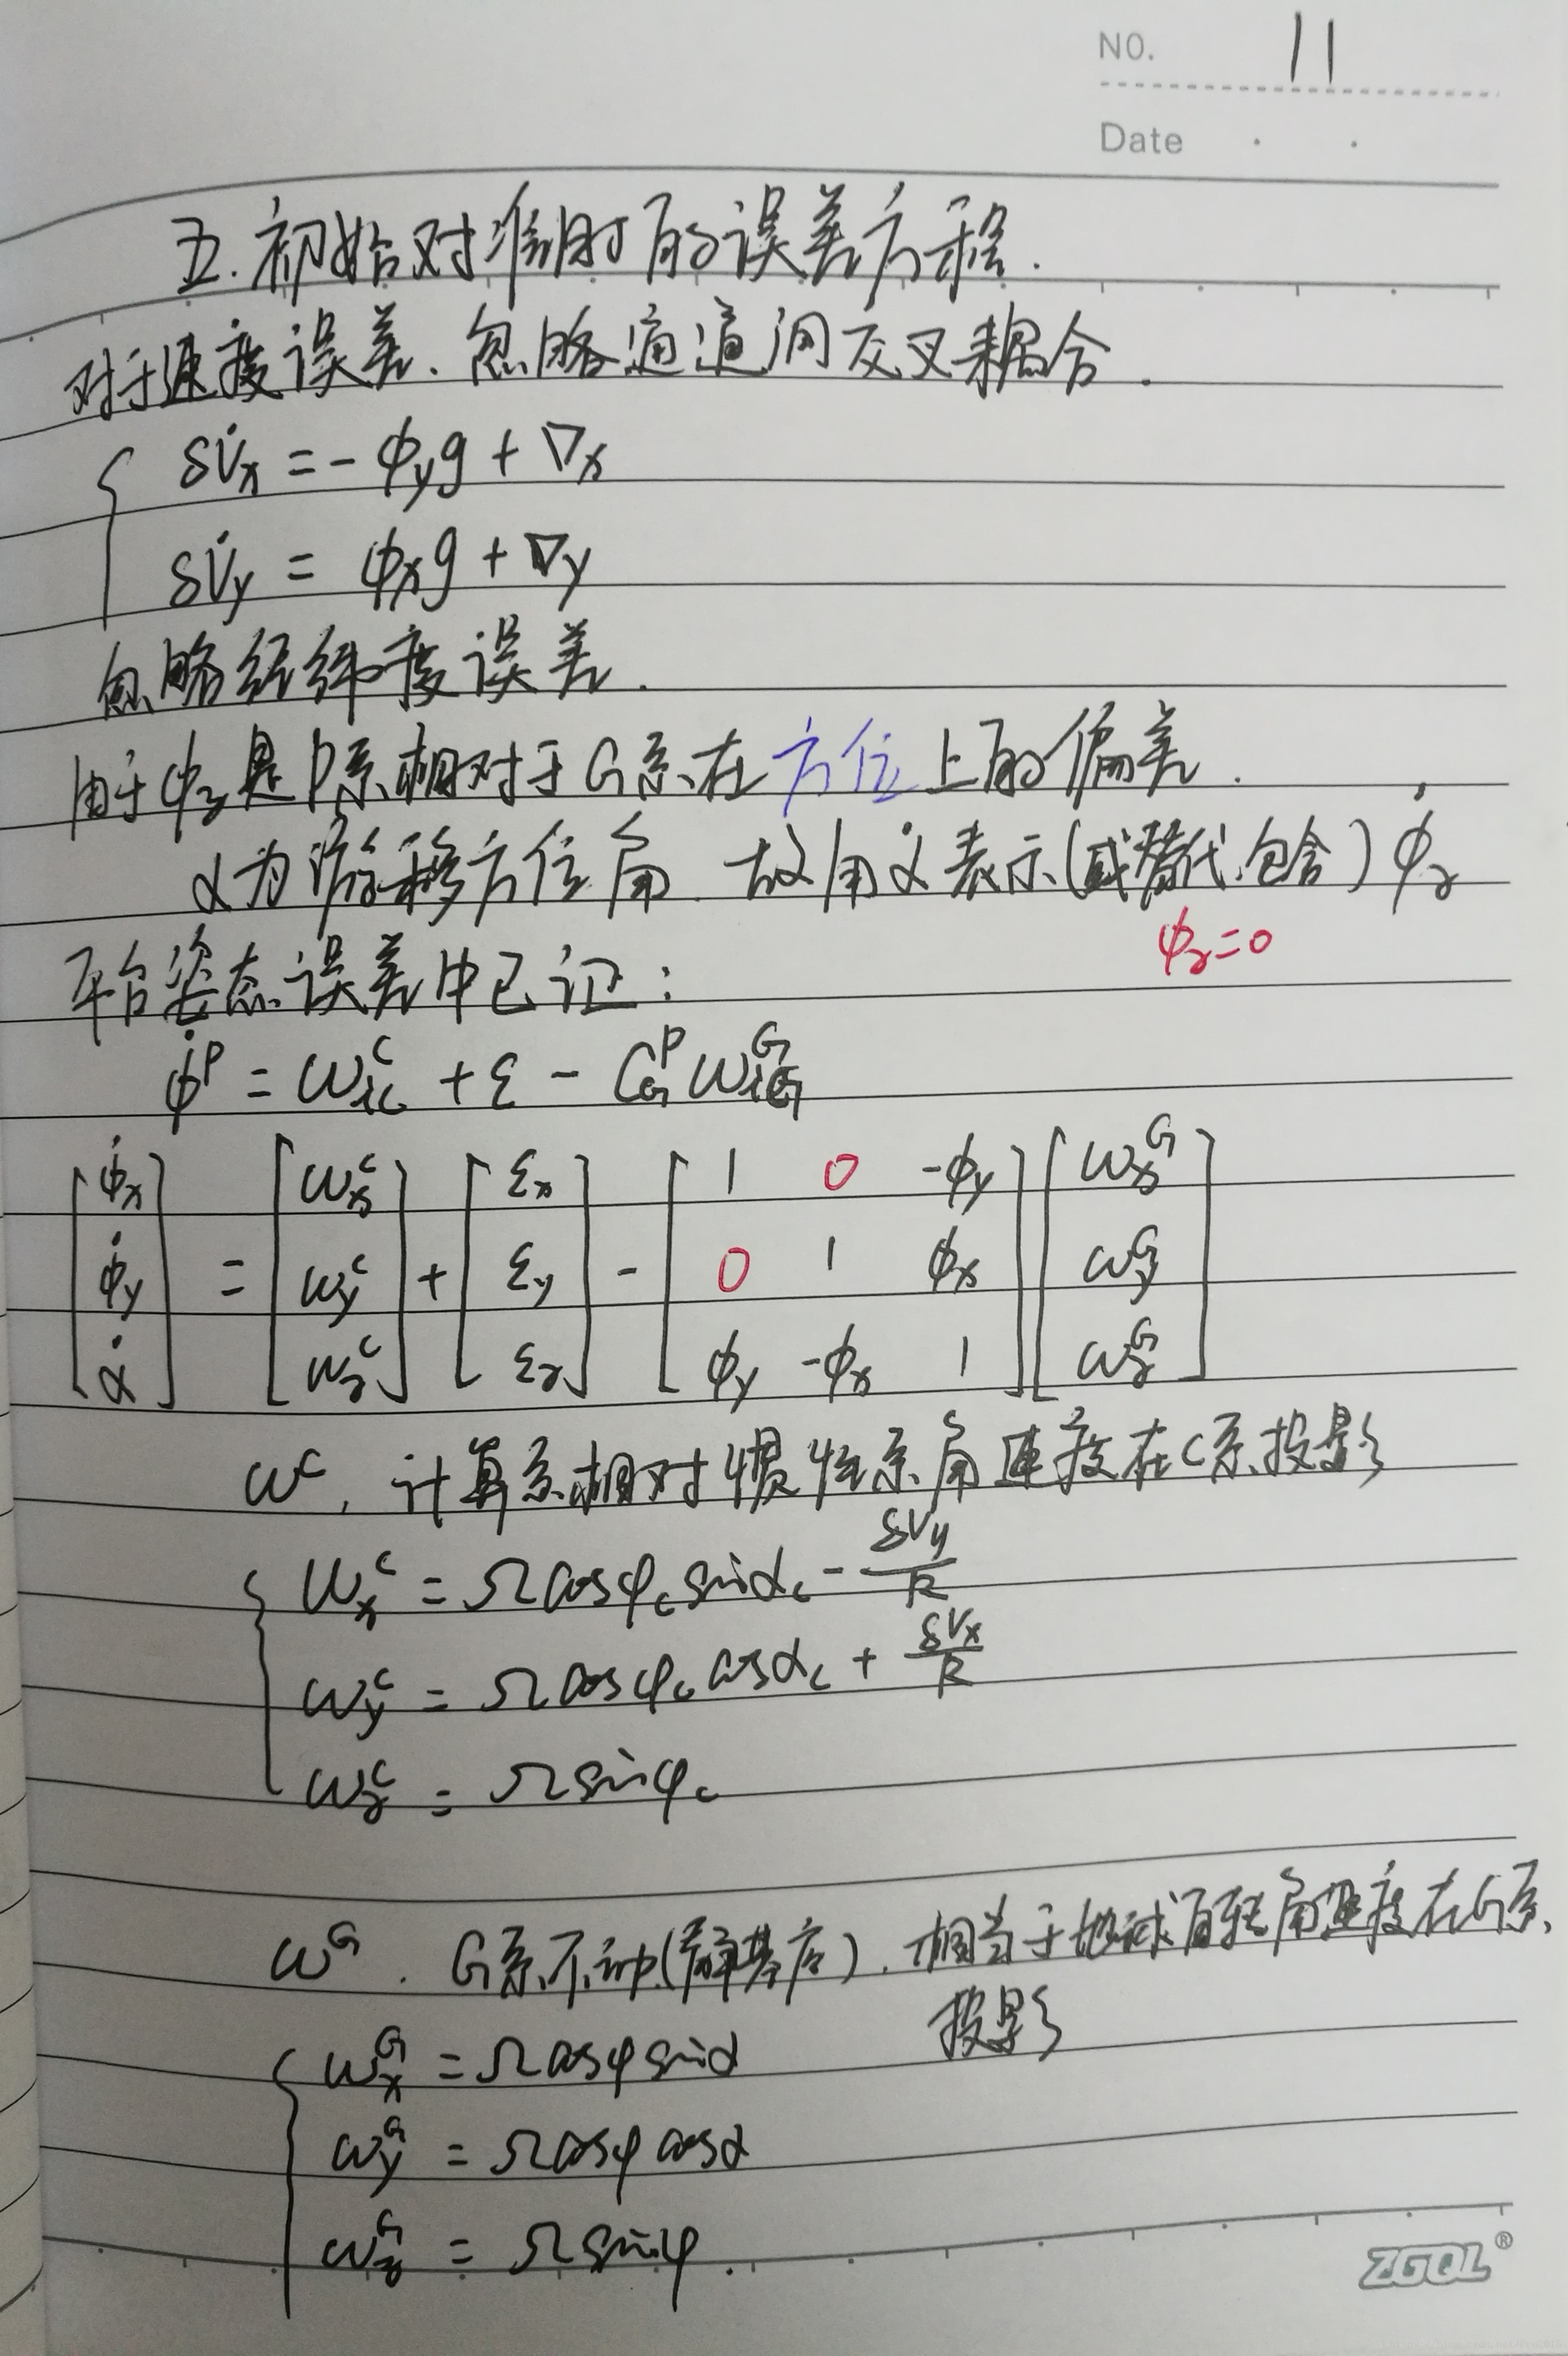 NO. 11
Date
五.初始对准时的误差方程.
对于速度误差、忽略通道间交叉耦合.
δV̇x = -ϕy g + ∇x
δV̇y = ϕx g + ∇y
忽略经纬度误差.
由于ϕz是P系相对于G系在方位上的偏差.
α为游移方位角.故用α̇表示(或替代.包含)ϕ̇z
ϕz=0
平台姿态误差中已证:
ϕ̇^P = ω_ic^C + ε - C_G^P ω_iG^G
[ϕ̇x ϕ̇y α̇] = [ωx^C ωy^C ωz^C] + [εx εy εz] - [1 0 -ϕy; 0 1 ϕx; ϕy -ϕx 1] [ωx^G ωy^G ωz^G]
ω^C, 计算系相对惯性系角速度在C系投影
ωx^C = Ωcosφc sinαc - δVy/R
ωy^C = Ωcosφc cosαc + δVx/R
ωz^C = Ωsinφc
ω^G. G系不动(静基座).相当于地球自转角速度在G系
投影
ωx^G = Ωcosφ sinα
ωy^G = Ωcosφ cosα
ωz^G = Ωsinφ.
ZGQL®